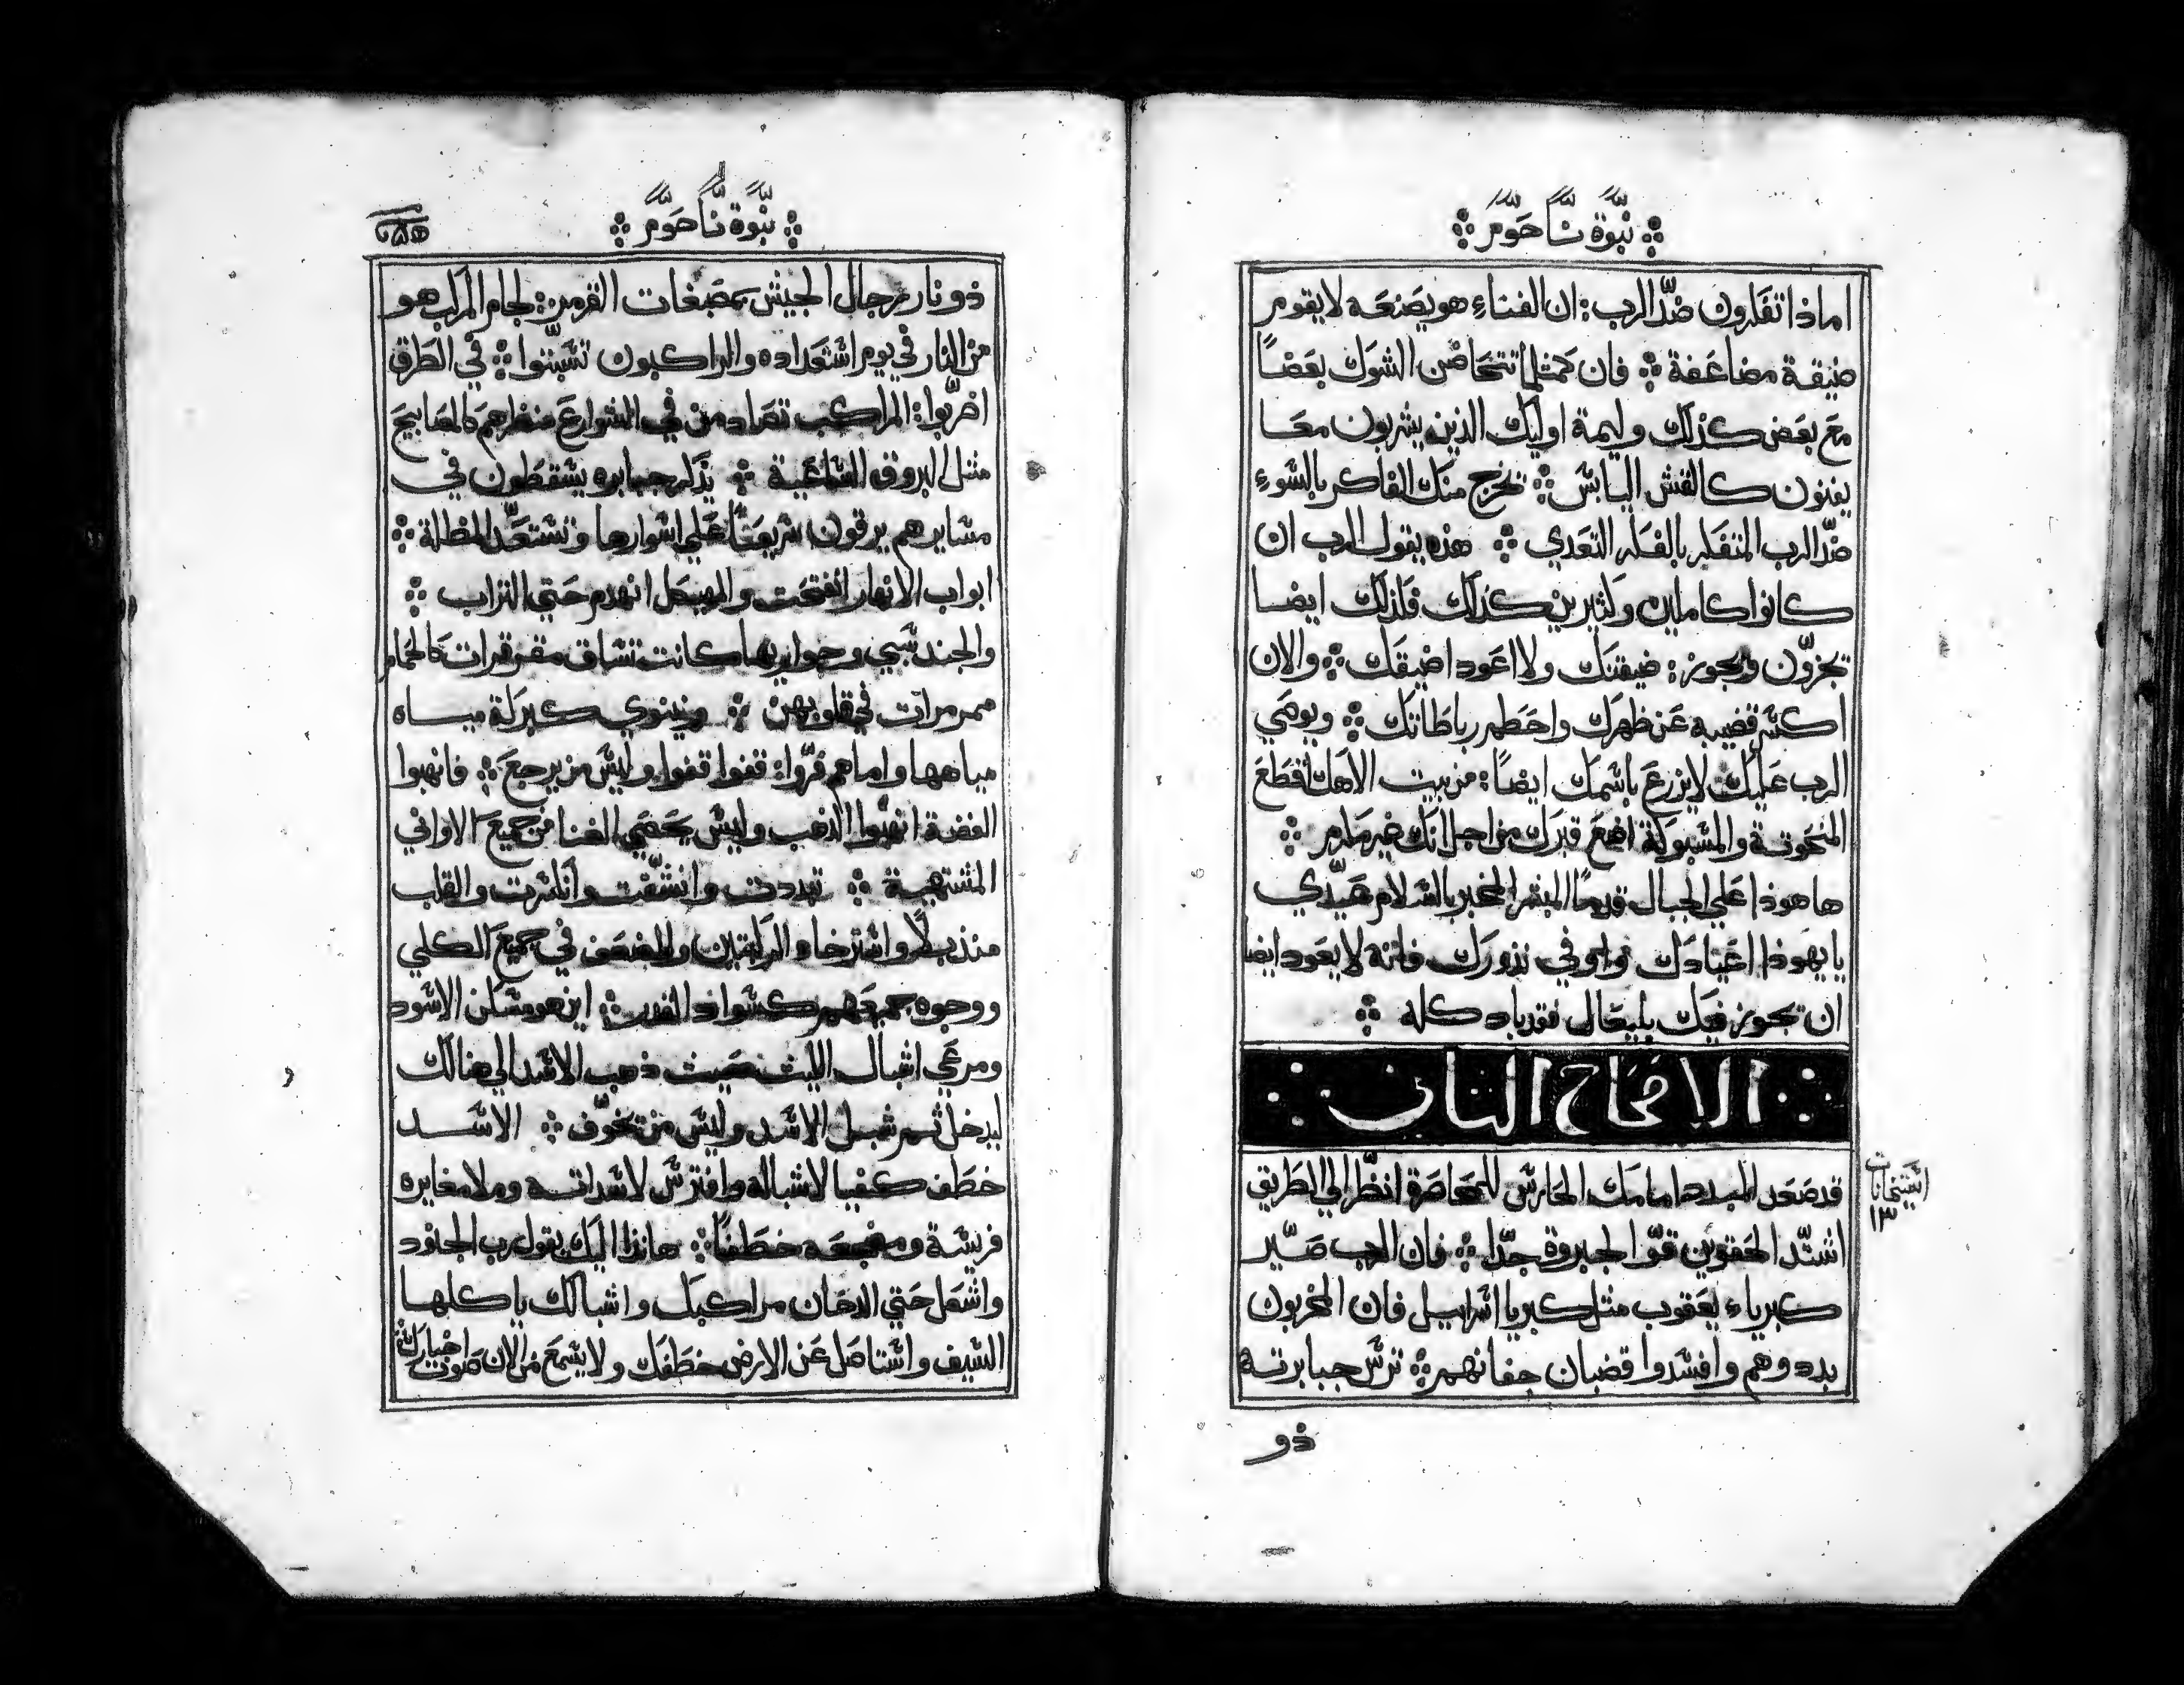 نبوة ناحوم
اماذا تفكرون ضدّ الرب : ان الفناء هو يصنعه لا يقوم
ضيقة مضاعفة فان كمثلما تتحاضن الشوك بعضاً
مع بعض كذلك وليمة اوليك الذين يشربون معا
يفنون كالقش اليابس تخرج منك الفاكر بالسوء
ضدّ الرب المتفكر بالفكر التعدي هذه يقول الرب ان
كانوا كاملين وكثيرين كذلك فلذلك ايضا
يجزون ويجوز : ضيقتك ولا اعود اضيقك والان
اكسر قضيبه عن ظهرك واحطم رباطاتك ويوصي
الرب عليك لا يزرع باسمك ايضاً : من بيت الاهك اقطع
المنحوتة والمسبوكة اضع قبرك من اجل انك غير مكرم
ها هوذا علي الجبال قدما المبشر المخبر بالسلام عيّدي
يا يهوذا اعيادك واوفي نذورك فانه لا يعود ايضا
ان يجوز فيك بليعال فقد باد كله
الاصحاح الثاني
قد صعد المبدد امامك الحارس للمحاصرة انظر الي الطريق
اشدّد الحقوين قوّ الجبروة جدّا فان الرب صيّر
كبرياء يعقوب مثل كبريا اسراييل فان المخربون
بددوهم وافسدوا قضبان جفانهم ترس جبابرته
١٣
ذو
نبوة ناحوم
ذو نار رجال الجيش بمصبغات القرمز : لجام المركب هو
من النار في يوم استعداده والراكبون تسبّتوا في الطرق
اضربوا : المراكب تصادمن في الشوارع منظرهم كالمصابيح
مثل البروق الساعية يذكر جبابره يسقطون في
مسايرهم يرقون سريعاً علي اسوارها وتستعدّ المظالة
ابواب الانهار انفتحت والهيكل انهدم حتي التراب
والجند سبي وجواريها كانت تساق مقرقرات كالحمام
ممرمرات في قلوبهن ونينوي كبركة مياه
مياهها واما هم فرّوا : قفوا قفوا وليس من يرجع فانهبوا
الفضة انهبوا الذهب وليس يحصي الغنا من جميع الاواني
المشتهية تبددت وانشقت وانكسرت والقلب
منذبلاً واسترخاء الركبتين والضعف في جميع الكلي
ووجوه جميعهم كسواد القدر اين هو مسكن الاسود
ومرعي اشبال الليث حيث ذهب الاسد الي هنالك
ليدخل ثم شبل الاسد وليس من تخوّف الاسد
خطف كفيا لاشباله وافترس لاسداته وملا مغايره
فريسة ومضجعه خطفاً هانذا اليك يقول رب الجنود
واشعل حتي الدخان مراكبك واشبالك ياكلها
السيف واستاصل عن الارض خطفك ولا يسمع من الان صوت